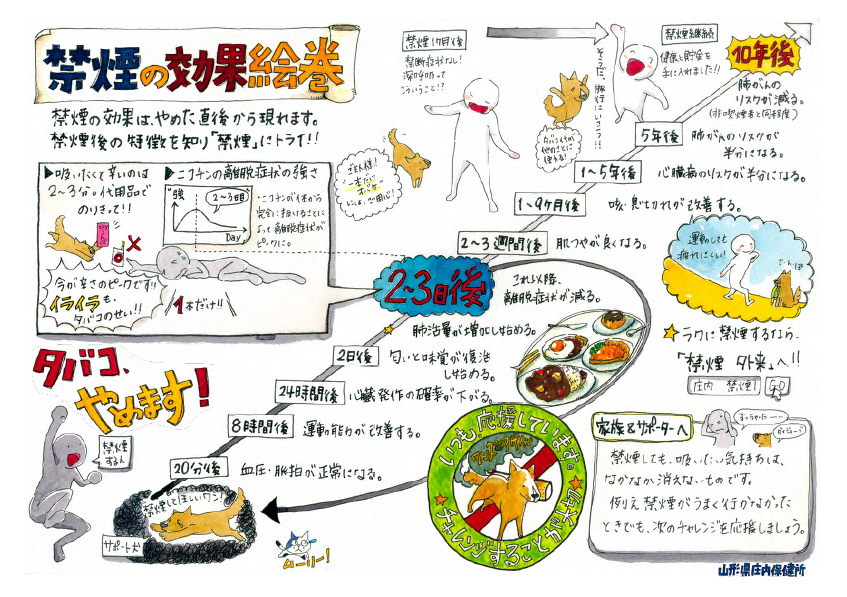 禁煙の効果絵巻
禁煙の効果は、やめた直後から現れます。
禁煙後の特徴を知り「禁煙」にトライ!!
▶吸いたくて辛いのは
2~3分。代用品で
のりきって!!
▶ニコチンの離脱症状の強さ
強
2~3日
Day
・ニコチンが体から
完全に抜けることに
よって離脱症状が
ピークに。
今が辛さのピークです!!
イライラも、
タバコのせい!!
1本だけ!!
タバコ、
やめます!
禁煙
するん
サポート犬
禁煙してほしいワン!
ムーリー!
20分後
血圧・脈拍が正常になる。
8時間後
運動能力が改善する。
24時間後
心臓発作の確率が下がる。
2日後
匂いと味覚が復活
し始める。
2~3日後
肺活量が増加し始める。
これ以降、
離脱症状が減る。
2~3週間後
肌つやが良くなる。
1~9ヶ月後
咳・息切れが改善する。
1~5年後
心臓病のリスクが半分になる。
5年後
肺がんのリスクが
半分になる。
10年後
肺がんの
リスクが減る。
(非喫煙者と同程度)
禁煙1ヶ月後
禁断症状なし!
深呼吸って
こういうこと!?
そうだ、旅行にいこーっ!!
禁煙継続
健康と貯金を
手に入れました!!
運動しても
疲れにくい!
さんぽ
ラクに禁煙するなら、
「禁煙外来」へ!!
庄内 禁煙
GO
いつも、応援しています。
チャレンジすることが大切
家族&サポーターへ
禁煙しても、吸いたい気持ちは、
なかなか消えないものです。
例え禁煙がうまく行かなかった
ときでも、次のチャレンジを応援しましょう。
山形県庄内保健所